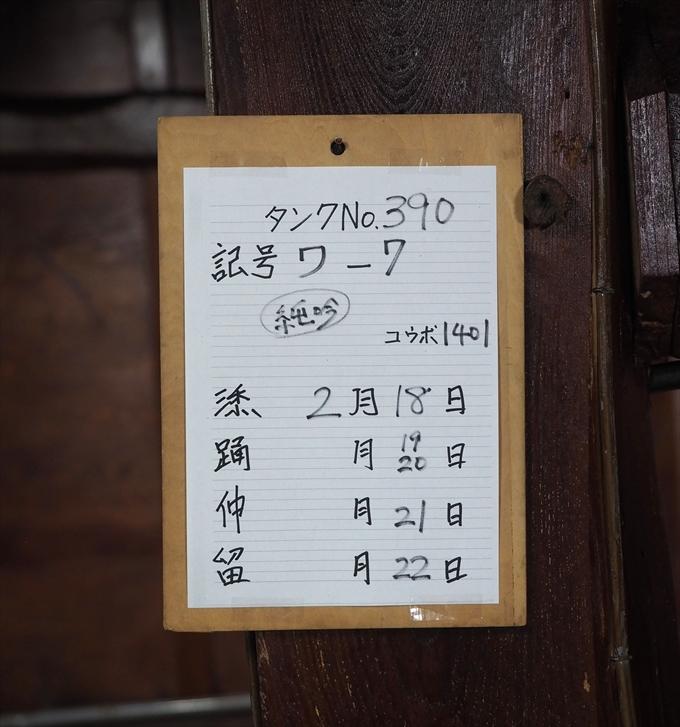 タンクNo.390
記号 ワ-7
純吟
コウボ1401
添 2月18日
踊 月19 20日
仲 月21日
留 月22日